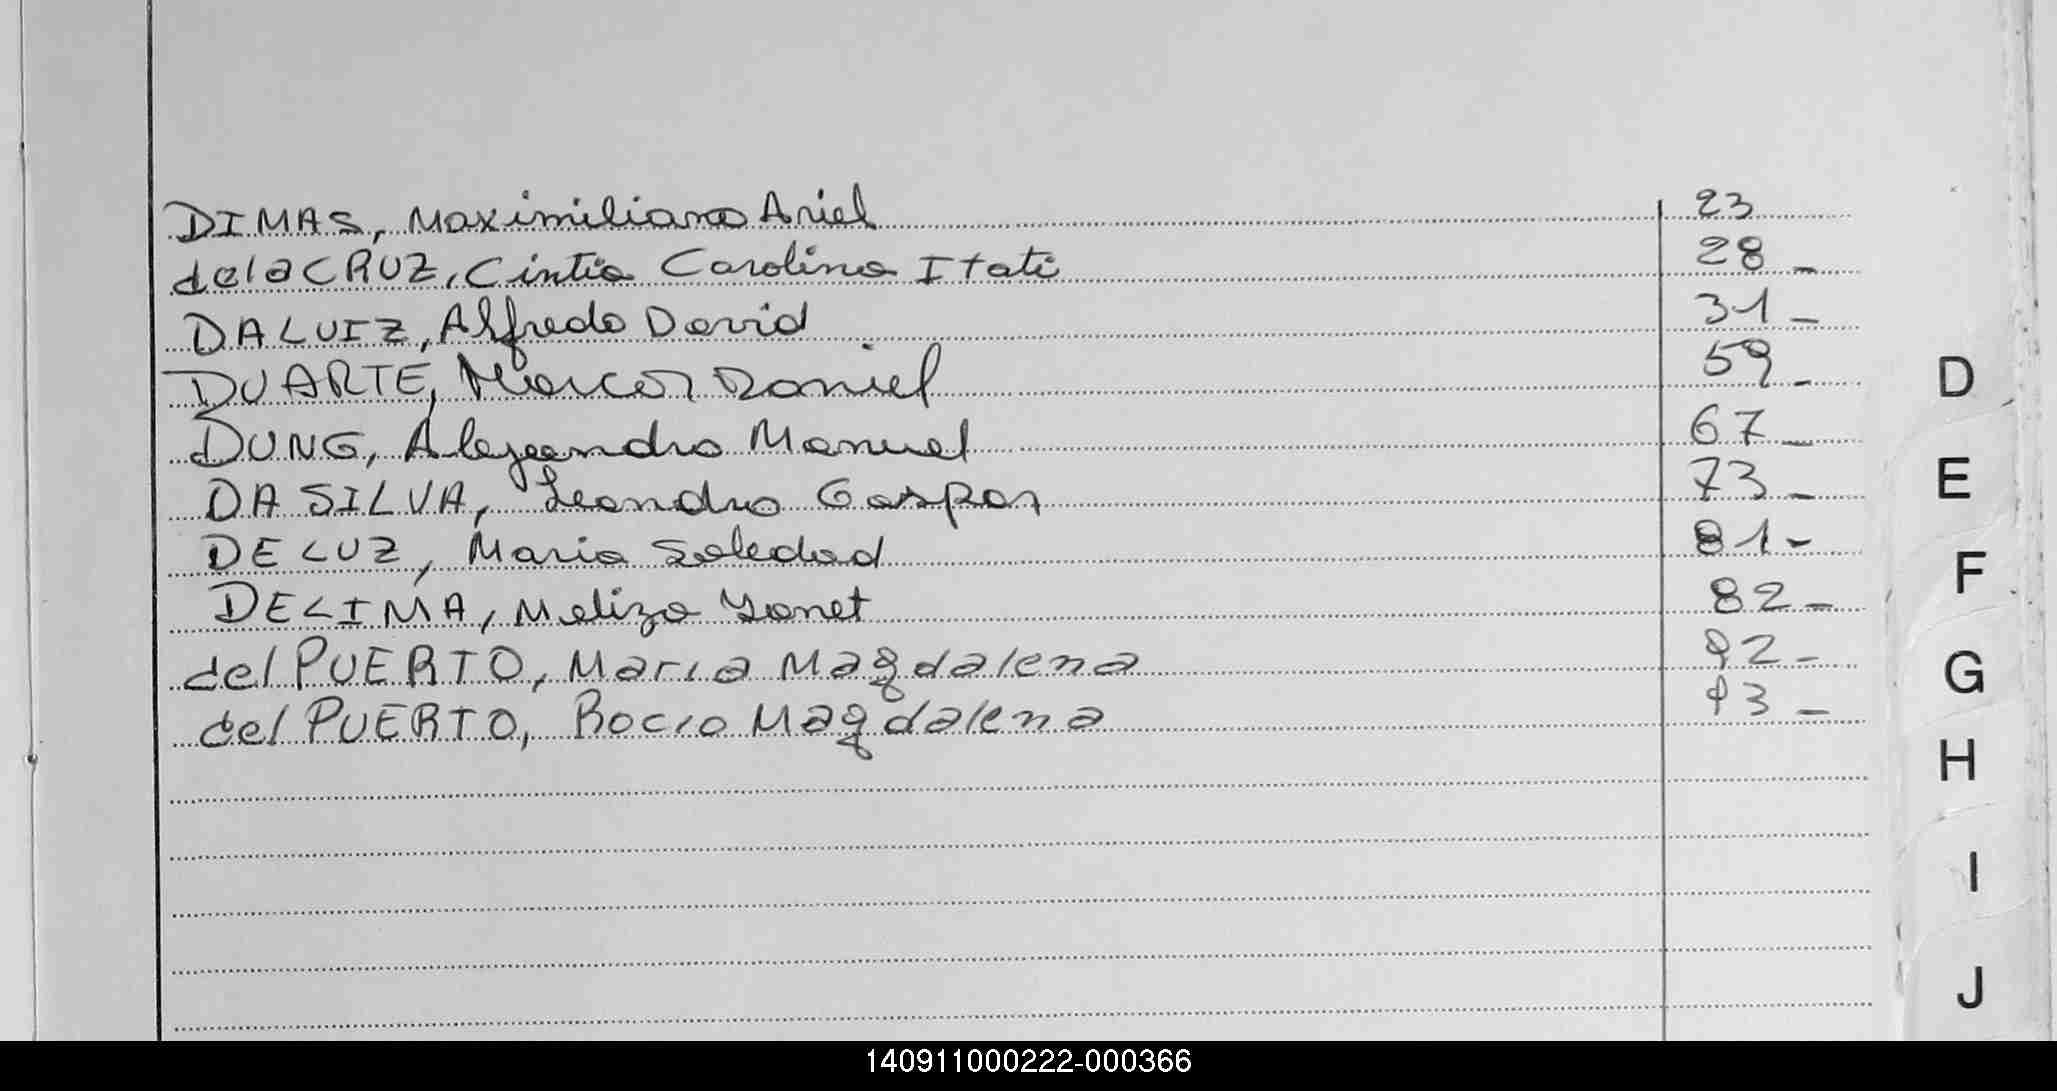 DIMAS, Maximiliano Ariel 23
de la CRUZ, Cintia Carolina Itati 28 -
DALUIZ, Alfredo David 31 -
DUARTE, Marcos Daniel 59 -
DUNG, Alejandro Manuel 67 -
DA SILVA, Leandro Gaspar 73 -
DE LUZ, Maria Soledad 81 -
DE LIMA, Meliza Yanet 82 -
del PUERTO, Maria Magdalena 92 -
del PUERTO, Rocio Magdalena 93 -
D
E
F
G
H
I
J
140911000222-000366